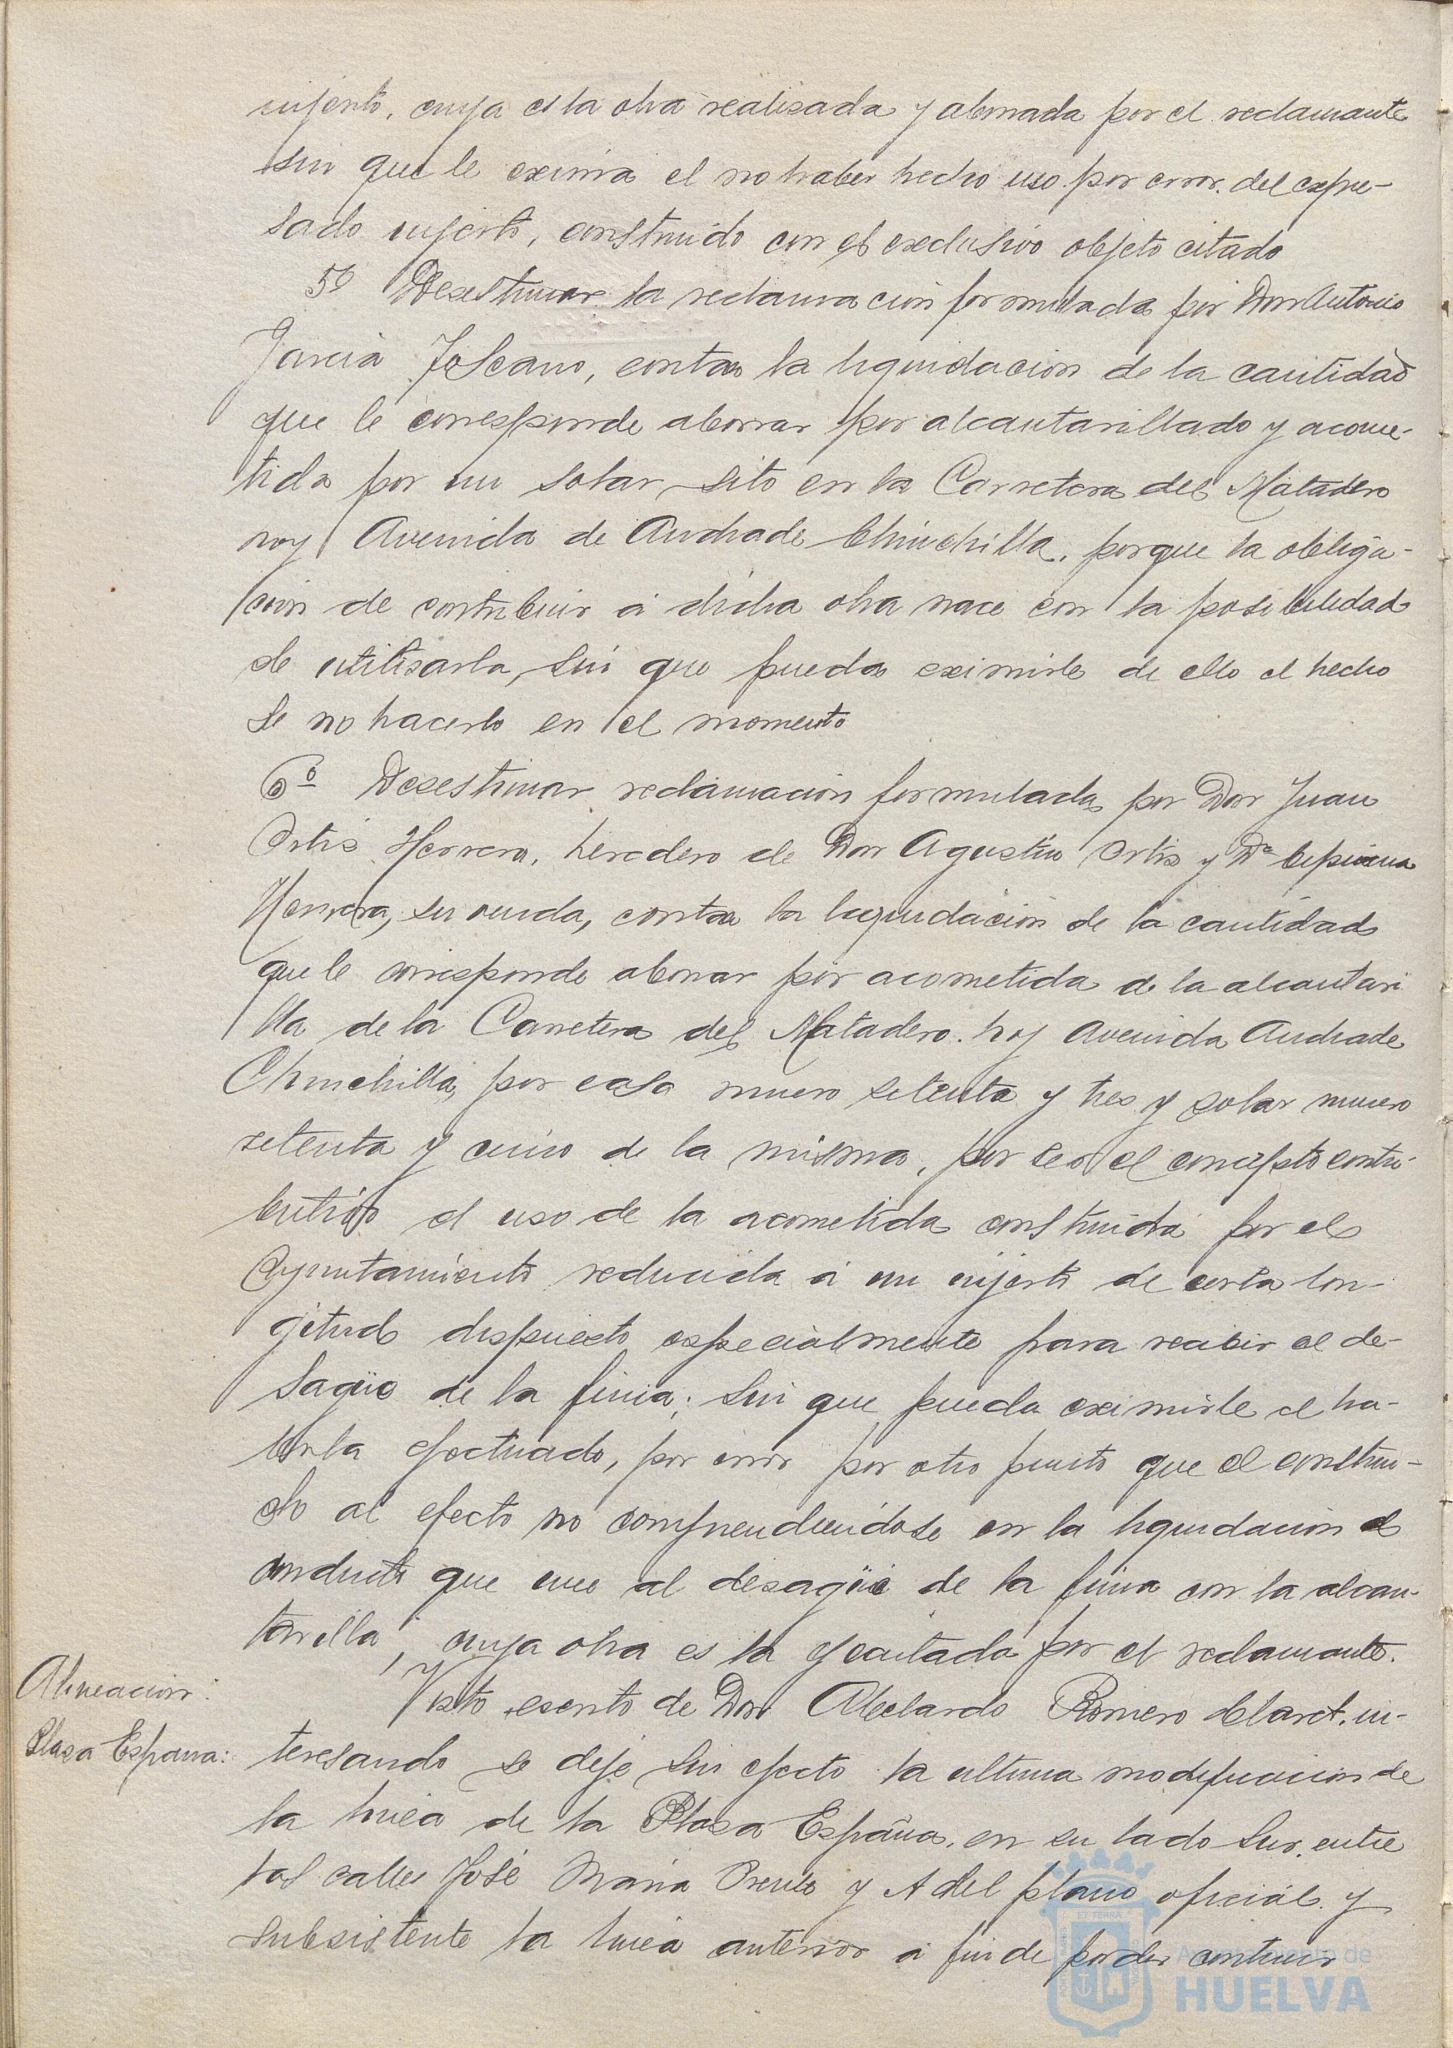 injerto, cuya es la obra realisada y abonada por el reclamante
sin que le exima el no haber hecho uso por error del expre-
sado injerto, construido con el exclusivo objeto citado
5º Desestimar la reclamacion formulada por Don Antonio
Garcia Toscano, contra la liquidacion de la cantidad
que le corresponde abonar por alcantarillado y acome-
tida por un solar sito en la Carretera del Matadero
hoy Avenida de Andrade Chinchilla, porque la obliga-
cion de contribuir á dicha obra nace con la posibilidad
de utilisarla, sin que pueda eximirle de ello el hecho
de no hacerlo en el momento
6º Desestimar reclamacion formulada por Don Juan
Ortis Herrera, heredero de Don Agustin Ortis y Dª
Herrera, su viuda, contra la liquidacion de la cantidad
que le corresponde abonar por acometida de la alcantari
lla de la Carretera del Matadero. hoy Avenida Andrade
Chinchilla, por casa nuero setenta y tres y solar nuero
setenta y cinco de la misma, por ser el concepto contri-
butivo el uso de la acometida construida por el
Ayuntamiento reducida á un injerto de corta lon-
gitud dispuesto especialmente para recibir el de-
sagüe de la finca; sin que pueda eximirle el ha-
berla efectuado, por error por otro punto que el construi-
do al efecto no comprendiendose en la liquidacion el
conducto que une al desagüe de la finca con la alcan-
tarilla, cuya obra es la ejecutada por el reclamante.
Alineacion: Visto escrito de Don Abelardo Romero Claret, in-
Plasa España: teresando se deje sin efecto la ultima modificacion de
la linea de la Plasa España, en su lado Sur, entre
las calles José Maria y A del plano oficial y
subsistente la linea anterior á fin de poder
Ayuntamiento de
HUELVA